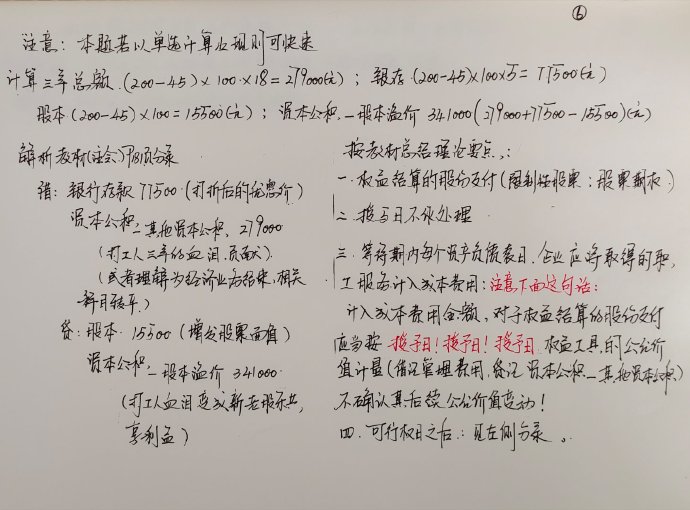 ⑥
注意：本题若以单选计算题规则可快速
计算三年总额.(200-45)×100×18=279000(元)；银存.(200-45)×100×5=77500(元)
股本(200-45)×100=15500(元)；资本公积.—股本溢价 341000(279000+77500-15500)(元)
解析教材(注会)P181页分录
借：银行存款 77500 (打折后的优惠价)
资本公积
—其他资本公积. 279000
(打工人三年的血泪.贡献)
(或者理解为经济业务结束，相关
科目转平.)
贷：股本. 15500 (增发股票面值)
资本公积
—股本溢价 341000.
(打工人血泪变成新老股东共
享利益)
按教材总结理论要点：
一.权益结算的股份支付(限制性股票；股票期权)
二.授予日不做处理
三.等待期内每个资产负债表日.企业应将取得的职
工服务计入成本费用：注意下面这句话：
计入成本费用金额，对于权益结算的股份支付
应当按 授予日！授予日！授予日.权益工具的公允价
值计量(借记管理费用.贷记资本公积—其他资本公积)
不确认其后续公允价值变动！
四.可行权日之后：见左侧分录。